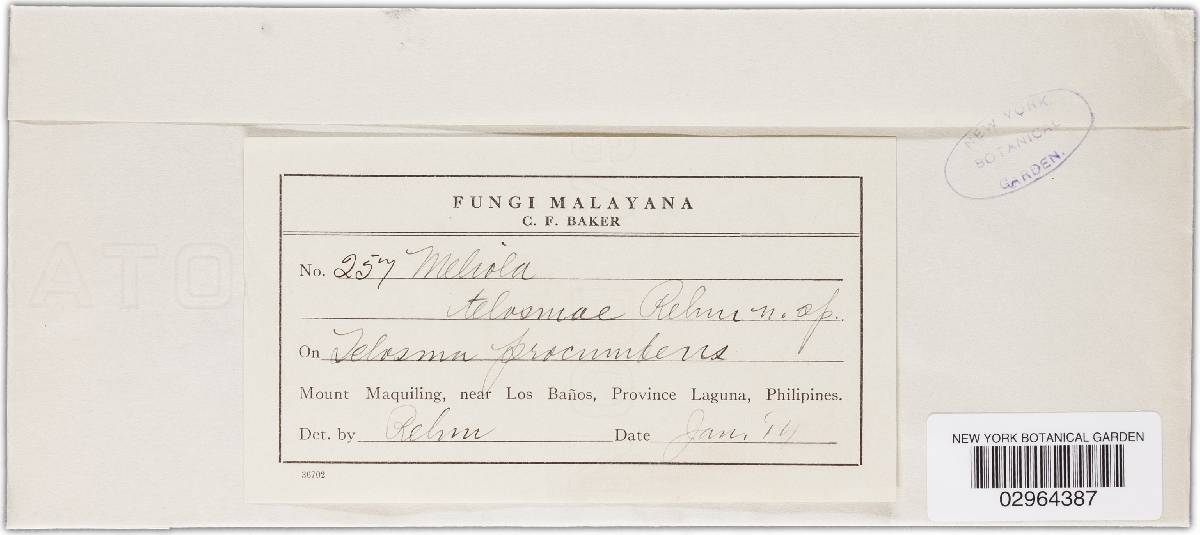 NEW YORK
BOTANICAL
GARDEN.
FUNGI MALAYANA
C. F. BAKER
No. 257 Meliola
telosmae Rehm n. sp.
On Telosma procumbens
Mount Maquiling, near Los Baños, Province Laguna, Philipines.
Det. by Rehm Date Jan. '14
36702
ATO
NEW YORK BOTANICAL GARDEN
02964387